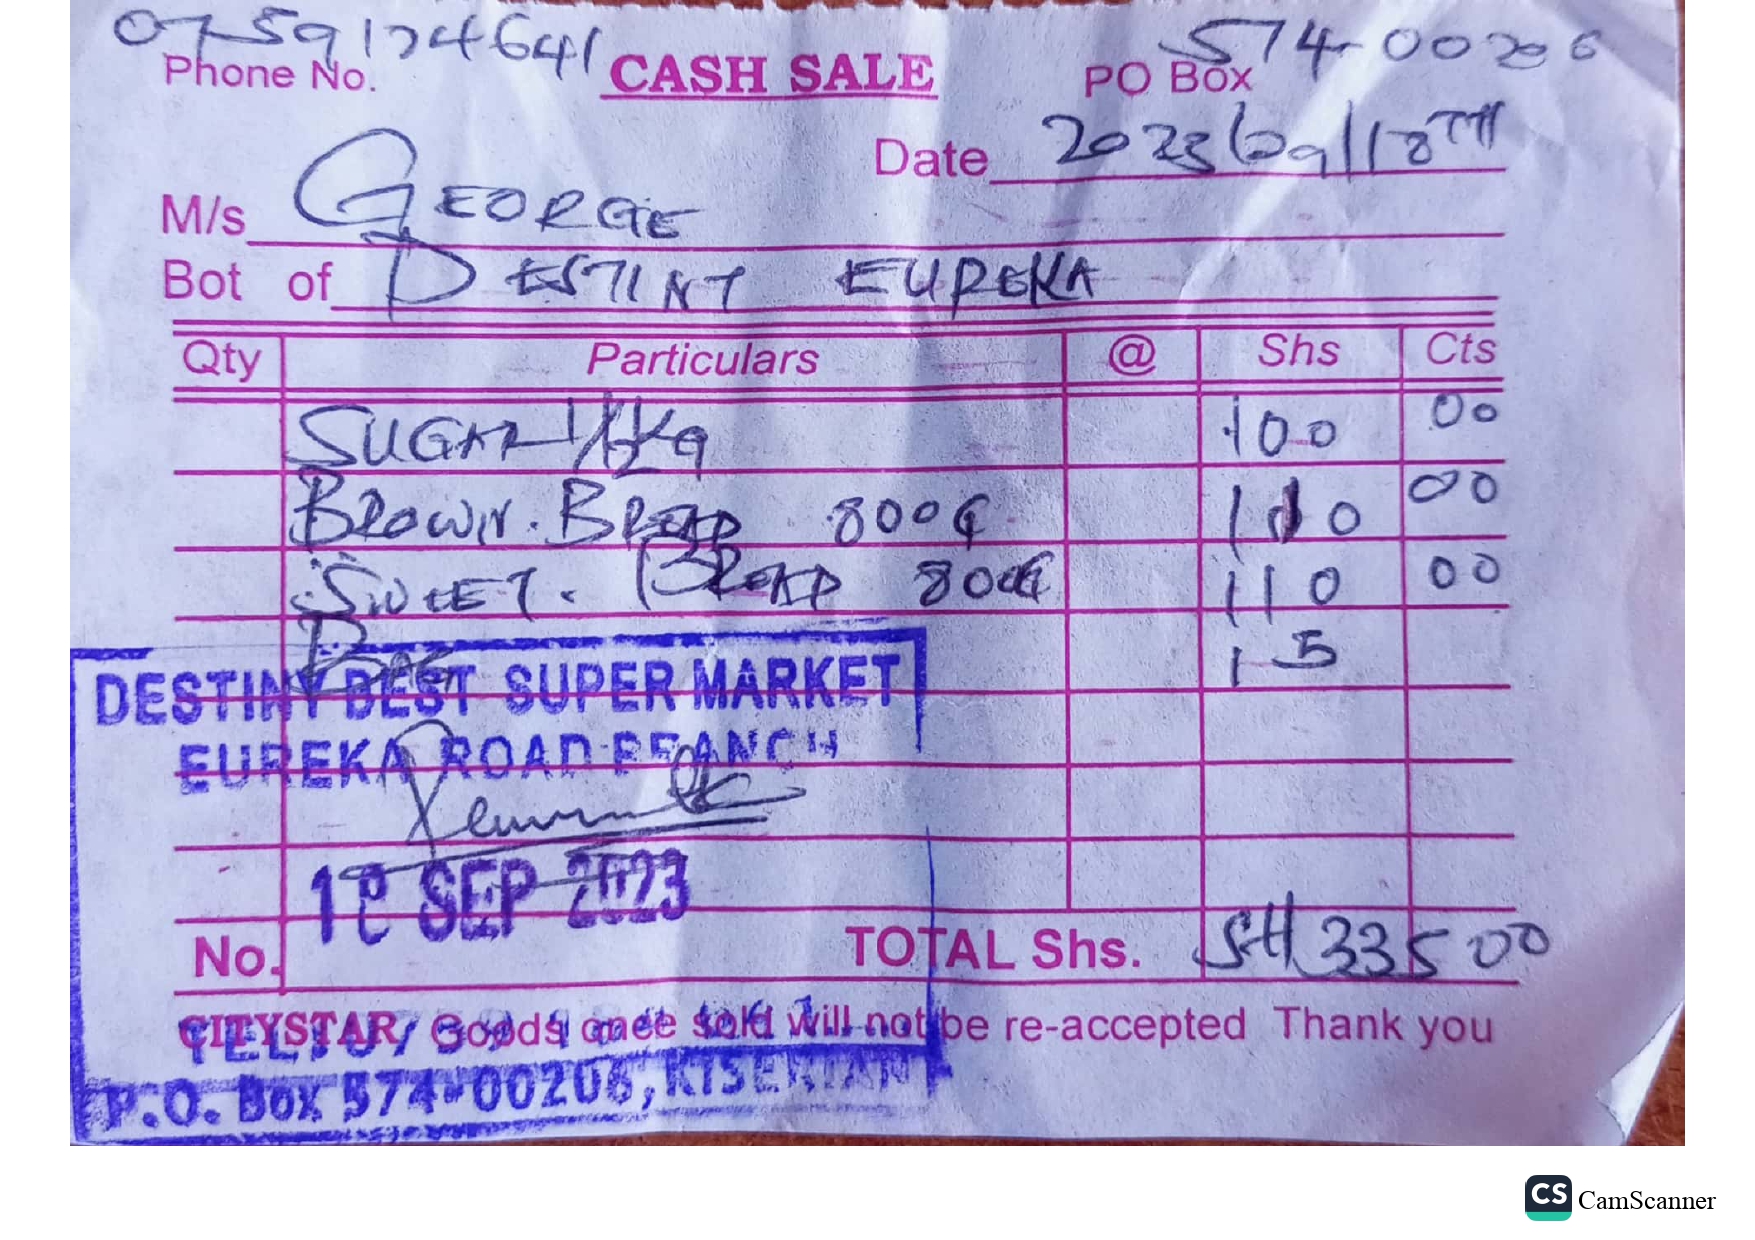 0759124641 574-00206
Phone No. CASH SALE PO Box
Date 2023/09/18TH
M/s GEORGE
Bot of DESTINY EUREKA
Qty Particulars @ Shs Cts
SUGAR 1/2kg 100 00
BROWN. BREAD 800G 110 00
SWEET. BREAD 800G 110 00
BAG 15
DESTINY BEST SUPER MARKET
EUREKA ROAD BRANCH
18 SEP 2023
No. TOTAL Shs. SH 335 00
CITYSTAR Goods once sold will not be re-accepted Thank you
P.O. Box 574-00206, KISERIAN
CS CamScanner